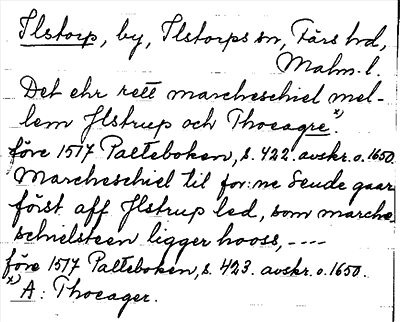 Ilstorp, by, Ilstorps sn, Färs hd,
Malm. l.
Det ehr rett marcheschiel mel-
lem Jlstrup och Thocagre. x)
före 1517 Palteboken, s. 422. avskr. o. 1650.
Marcheschiel til for:ne Seude gaar
först aff Jlstrup led, som marche
schielsteen ligger hooss, ----
före 1517 Palteboken, s. 423. avskr. o. 1650.
x) A: Thocager.